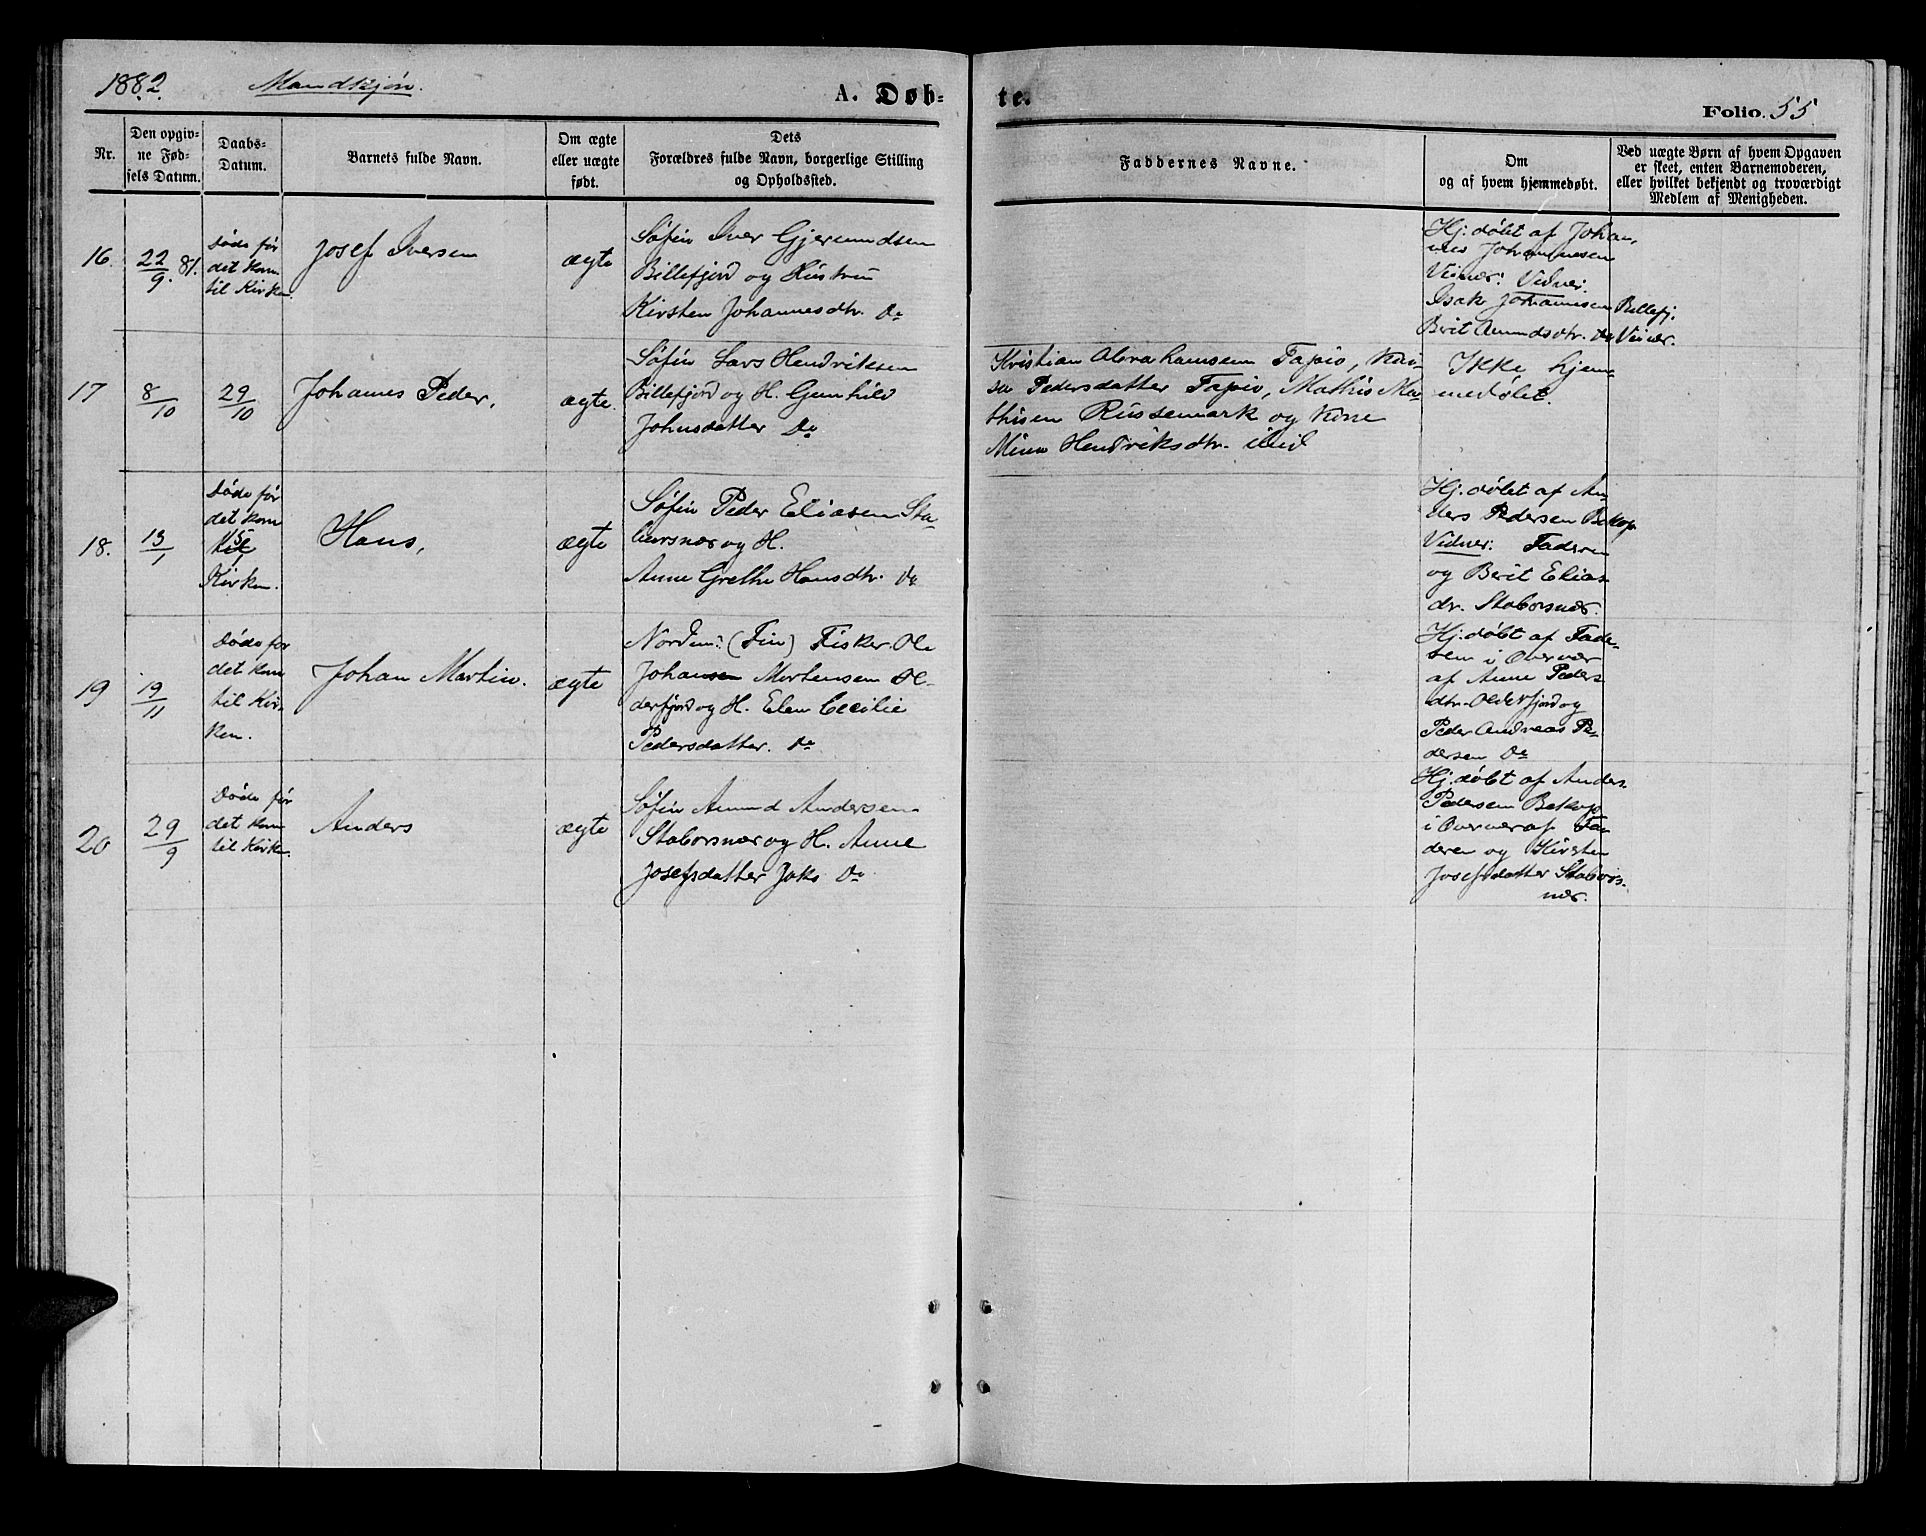 1882. Mandkjøn. A. Døb- te. Folio. 55
Nr.
Den opgiv-
ne Fød-
sels Datum.
Daabs-
Datum.
Barnets fulde Navn.
Om ægte
eller uægte
født.
Dets
Forældres fulde Navn, borgerlige Stilling
og Opholdssted.
Faddernes Navne.
Om
og af hvem hjemmedøbt.
Ved uægte Børn af hvem Opgaven
er skeet, enten Barnemoderen,
eller hvilket bekjendt og troværdigt
Medlem af Menigheden.
16.
22/9. 81.
Døde før
det kom
til Kirken.
Josef Iversen
ægte
Søfin Iver Gjermundsen
Billefjord og Hustru
Kirsten Johannesdtr. Do
Hj. døbt af Johan,
nes Johannesen
Veinær: Vidner.
Isak Johannesen Billefj.
Berit Amundsdtr. Do Veinær.
17
8/10
29/10
Johannes Peder,
ægte.
Søfin Lars Hendriksen
Billefjord og H. Gunhild
Johnsdatter Do
Kristian Abrahamsen Tapio, Kai-
sa Pedersdatter Tapio, Mathis Ma-
thisen Russemark og Kone
Minna Hendriksdtr. ibid
Ikke hjem-
medøbt.
18.
13/1
Døde før
det kom
til
Kirken.
Hans,
ægte
Søfin Peder Eliasen Sta-
bursnær og H.
Anne Grethe Hansdtr. Do
Hj. døbt af An-
ders Pedersen Bekop
Vidner: Faderen
og Berit Elias-
dr. Staborsnær.
19
19/11
Døde for
det kom
til Kir-
ken.
Johan Martin.
ægte
Nordm: (Fin) Fisker Ole
Johansen Mortensen Ol-
derfjord og H. Elen Cecilie
Pedersdatter. Do
Hj. døbt af Fade-
ren i Overvær
af Anne Peders
dtr. Olderfjord og
Peder Andreas Pe-
dersen Do
20
29/9
Døde før
det kom
til Kirken.
Anders
ægte
Søfin Amund Andersen
Staborsnær og H. Anne
Josefsdatter Joks Do
Hj. døbt af Anders
Pedersen Bekop
i Overvær af Fa-
deren og Kirsten
Josefsdatter Stabors-
nær.